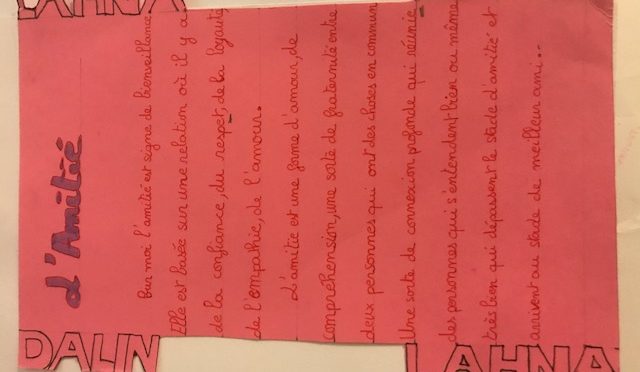 L'Amitié
Pour moi l'amitié est signe de bienveillance,
Elle est basée sur une relation où il y a
de la confiance, du respet, de la loyauté,
de l'empathie, de l'amour.
L'amitié est une forme d'amour, de
compréhension, une sorte de fraternité entre
deux personnes qui ont des choses en commun
Une sorte de connexion profonde qui réunie
des personnes qui s'entendent bien ou même
très bien qui dépassent le stade d'amitié et
arrivent au stade de meilleur ami..
DALIN
LAHNA
LAHNA